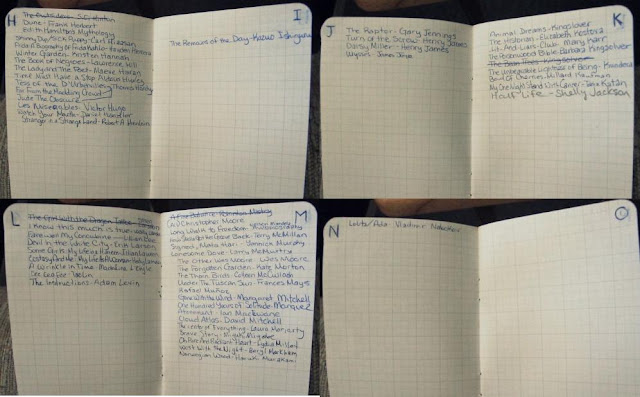 H
The Outsiders- SE Hinton
Dune- Frank Herbert
Edith Hamiltons Mythology
Skinny Dip/Sick Puppy- Carl Hiaasen
Frida: A Biography of Frida Kahlo- Hayden Herrera
Winter Garden- Kristen Hannah
The Book of Negroes- Lawrence Hill
The Lady and the Poet- Maeve Haran
Time Must Have a Stop- Aldous Huxley
Tess of the D'Urbervilles
Far From the Madding Crowd
Thomas Hardy
Jude The Obscure
Les Miserables- Victor Hugo
Watch Your Mouth- Daniel Handler
Stranger in a Strange Land- Robert A Heinlein
I
The Remains of the Day- Kazuo Ishiguro
J
The Raptor- Gary Jennings
Turn of the Screw- Henry James
Daisy Miller- Henry James
Ulysses- James Joyce
K
Animal Dreams- Kingsolver
The Historian- Elizabeth Kostova
Liar's Club- Mary Karr
The Poisonwood Bible- Barbara Kingsolver
The Bean Trees- Kingsolver
The Unbearable Lightness of Being- Kundera
Bowl of Cherries- Millard Kaufman
My One Night Stand With Cancer- Tania Katan
Half Life- Shelly Jackson
L
The Girl with the Dragon Tattoo-
I Know this much is true- Wally Lamb
Farewell My Concubine- Lilian Lee
Devil in the White City- Erik Larson
Some Girls: My Life in a Harem- Jillian Lauren
A Wrinkle in Time- Madeline L'Engle
The Instructions- Adam Levin
M
Christopher Moore
Long Walk to Freedom-
How Stella Got her Groove Back- Terry McMillan
Signed, Mata Hari- Yannick Murphy
Lonesome Dove- Larry McMurtry
The Other Wes Moore- Wes Moore
The Forgotten Garden- Kate Morton
The Thorn Birds- Colleen McCullough
Under The Tuscan Sun- Frances Mayes
Gone With the Wind- Margaret Mitchell
One Hundred Years of Solitude- Marquez
Atonement- Ian
Cloud Atlas- David Mitchell
The Center of Everything- Laura Moriarty
Brave Story- Miyuki Miyabe
West With The Night- Beryl Markham
Norwegian Wood- Haruki Murakami
N
Lolita/Ada- Vladimir Nabokov
O